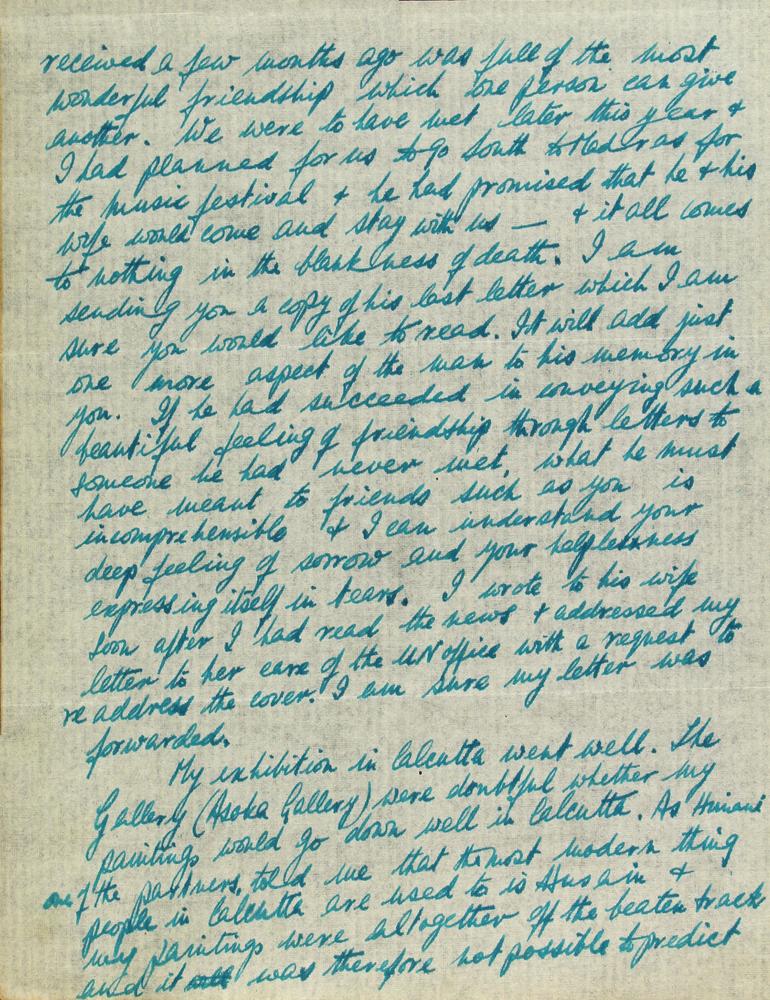 received a few months ago was full of the most
wonderful friendship which one person can give
another. We were to have met later this year &
I had planned for us to go South to Madras for
the music festival & he had promised that he & his
wife would come and stay with us — & it all comes
to nothing in the blankness of death. I am
sending you a copy of his last letter which I am
sure you would like to read. It will add just
one more aspect of the man to his memory in
you. If he had succeeded in conveying such a
beautiful feeling of friendship through letters to
someone he had never met, what he must
have meant to friends such as you is
incomprehensible & I can understand your
deep feeling of sorrow and your helplessness
expressing itself in tears. I wrote to his wife
soon after I had read the news & addressed my
letter to her care of the UN office with a request to
re address the cover. I am sure my letter was
forwarded.
My exhibition in Calcutta went well. The
Gallery (Asoka Gallery) were doubtful whether my
paintings would go down well in Calcutta. As
one of the partners, told me that the most modern thing
people in Calcutta are used to is Husain &
my paintings were altogether off the beaten track
and it was therefore not possible to predict